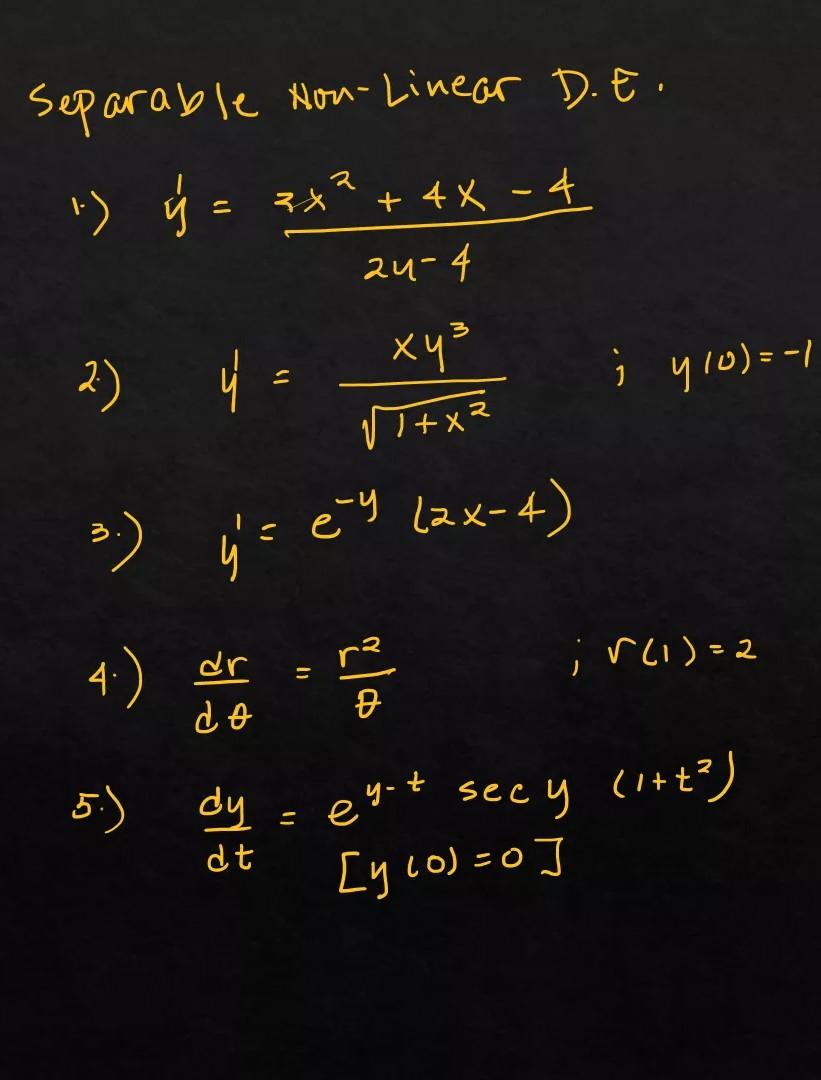 Separable Non-Linear D.E.
1.) y' = 3x² + 4x - 4 / 2y-4
2.) y' = xy³ / √1+x² ; y(0)=-1
3.) y' = e^-y (2x-4)
4.) dr/dθ = r²/θ ; r(1)=2
5.) dy/dt = e^y-t sec y (1+t²)
[y(0)=0]